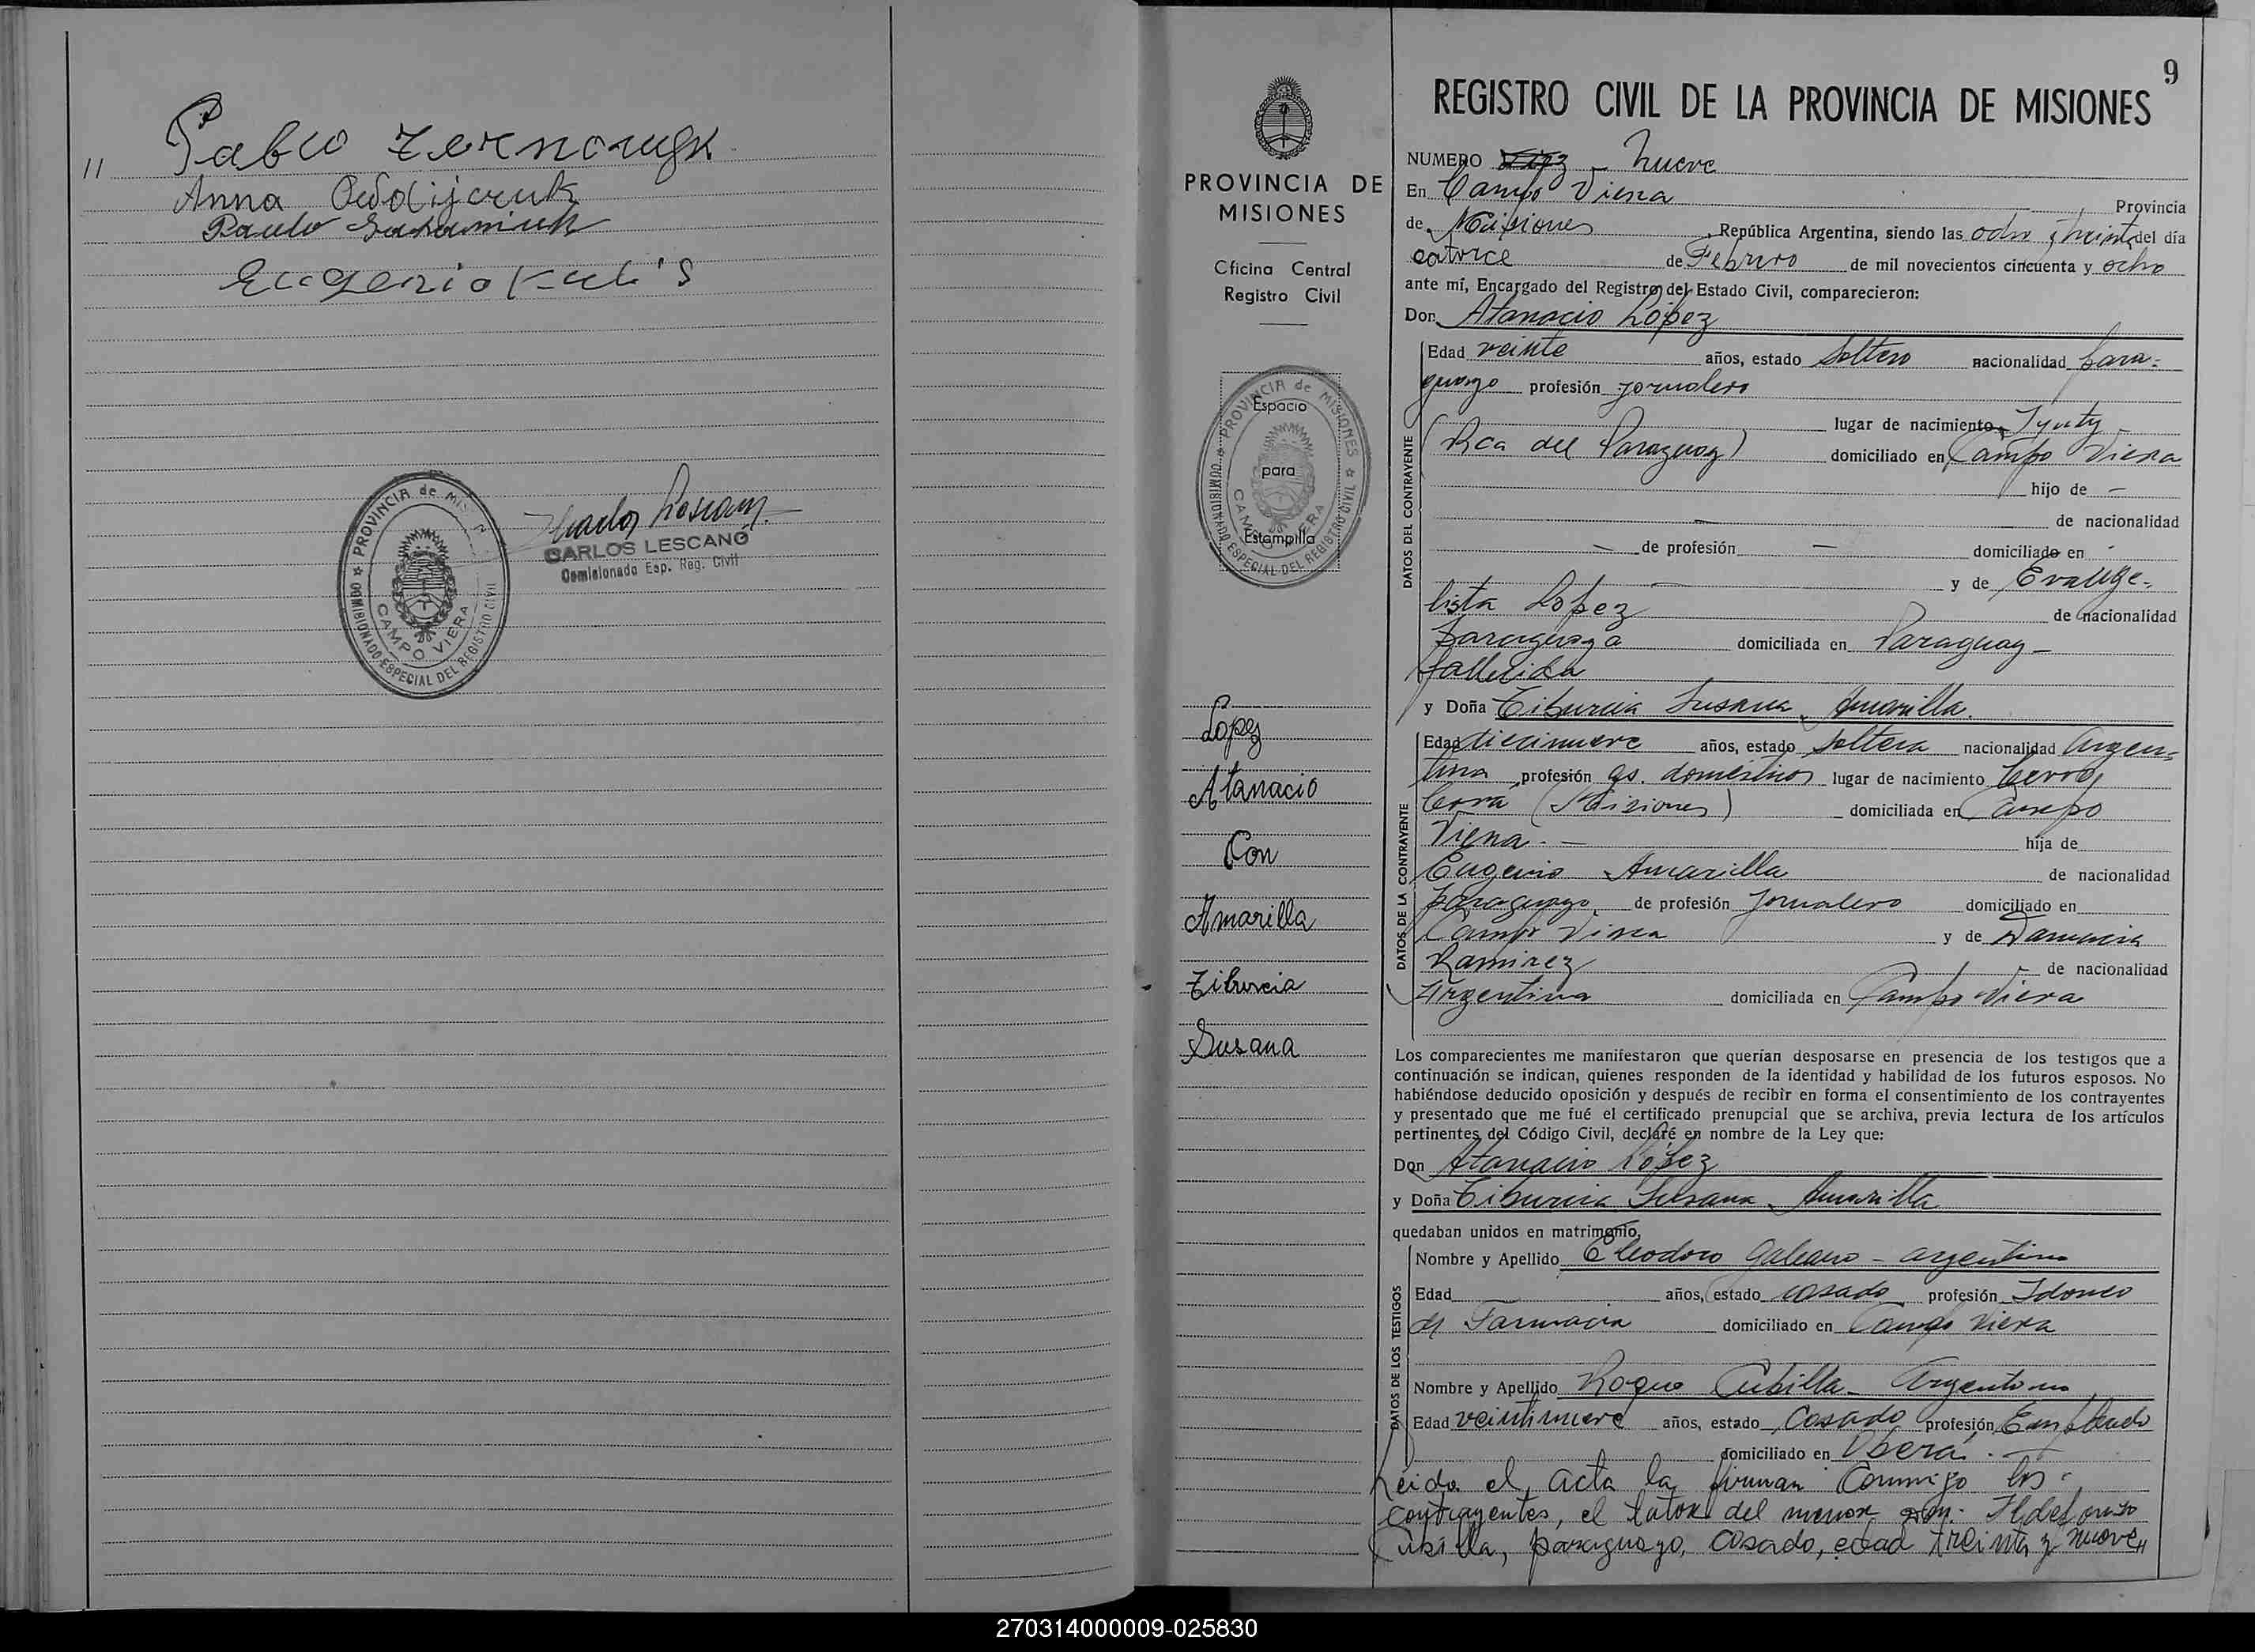 " Pablo Zernczugk
Anna
Paulo
Eugenio
PROVINCIA de MISIONES
CAMPO VIERA
COMISIONADO ESPECIAL DEL REGISTRO CIVIL
CARLOS LESCANO
Comisionado Esp. Reg. Civil
PROVINCIA DE
MISIONES
Oficina Central
Registro Civil
PROVINCIA de MISIONES
COMISIONADO ESPECIAL DEL REGISTRO CIVIL
Espacio
para
Estampilla
Lopez
Atanacio
Con
Amarilla
Tiburcia
Susana
9
REGISTRO CIVIL DE LA PROVINCIA DE MISIONES
NUMERO Diez - Nueve
En Campo Viera Provincia
de Misiones, República Argentina, siendo las ocho y treinta del día
catorce de Febrero de mil novecientos cincuenta y ocho
ante mí, Encargado del Registro del Estado Civil, comparecieron:
Don Atanacio López
Edad veinte años, estado Soltero nacionalidad para-
guayo profesión jornalero
lugar de nacimiento Yguty -
(Rca del Paraguay) domiciliado en Campo Viera
hijo de -
- de nacionalidad
- de profesión - domiciliado en -
- y de Evange-
lista López de nacionalidad
paraguaya domiciliada en Paraguay -
fallecida
y Doña Tiburcia Susana Amarilla.
Edad diecinueve años, estado Soltera nacionalidad Argen-
tina profesión qs. domésticos lugar de nacimiento Cerro
Corá (Misiones) domiciliada en Campo
Viera. - hija de
Eugenio Amarilla de nacionalidad
paraguayo de profesión Jornalero domiciliado en
Campo Viera y de Damacia
Ramirez de nacionalidad
Argentina domiciliada en Campo Viera
Los comparecientes me manifestaron que querían desposarse en presencia de los testigos que a
continuación se indican, quienes responden de la identidad y habilidad de los futuros esposos. No
habiéndose deducido oposición y después de recibir en forma el consentimiento de los contrayentes
y presentado que me fué el certificado prenupcial que se archiva, previa lectura de los artículos
pertinentes del Código Civil, declaré en nombre de la Ley que:
Don Atanacio López
y Doña Tiburcia Susana Amarilla
quedaban unidos en matrimonio.
Nombre y Apellido Eleodoro Galeano - argentino
Edad años, estado casado profesión Idoneo
de Farmacia domiciliado en Campo Viera
Nombre y Apellido Roque Cubilla - Argentino
Edad veintinueve años, estado Casado profesión Empleado
domiciliado en Oberá. -
Leida el acta la firman conmigo los
contrayentes, el tutor del menor don Ildefonso
Cubilla, paraguayo, casado, edad treinta y nueve "
DATOS DEL CONTRAYENTE
DATOS DE LA CONTRAYENTE
DATOS DE LOS TESTIGOS
270314000009-025830